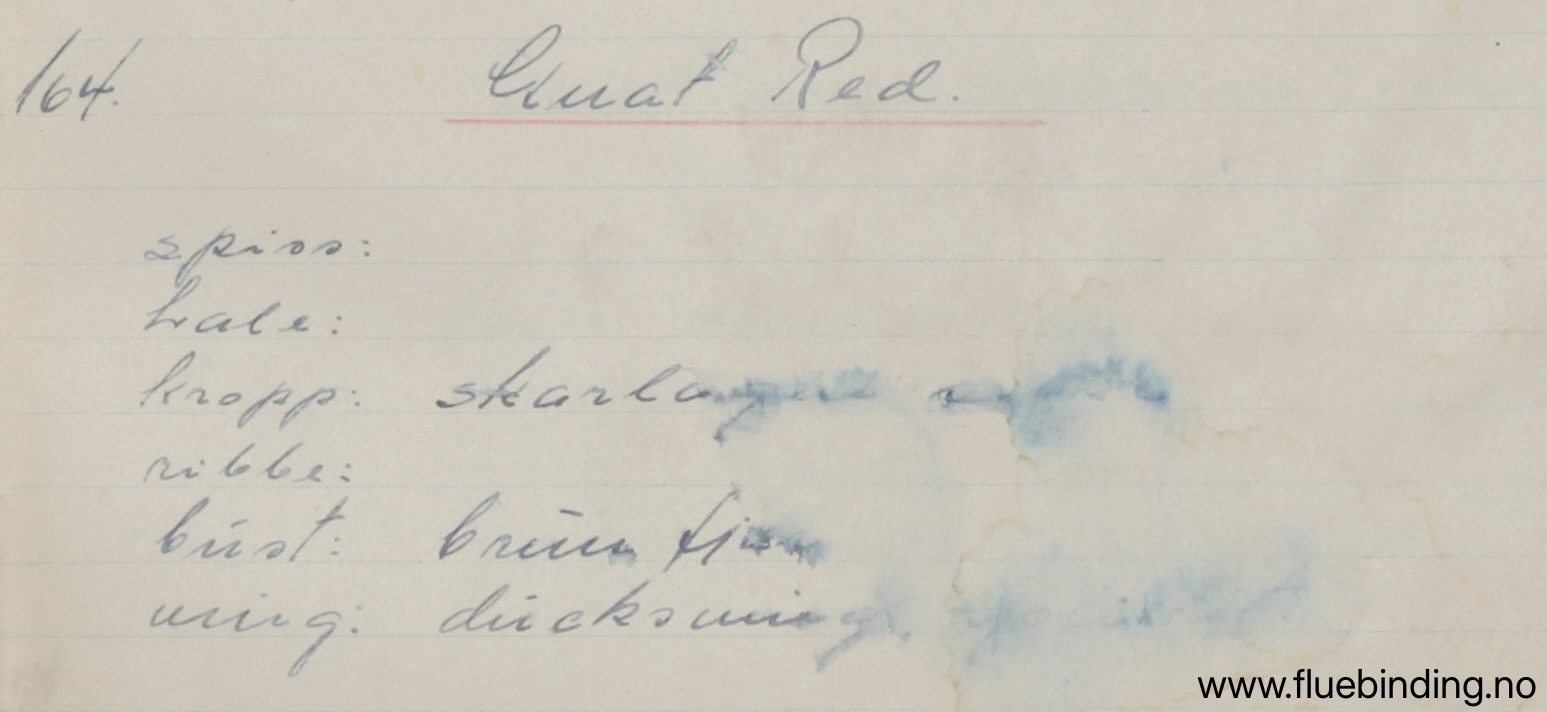 164. Gnat Red.
spiss:
hale:
kropp: skarlagen
ribbe:
bust: brun
ving: duckswing
www.fluebinding.no